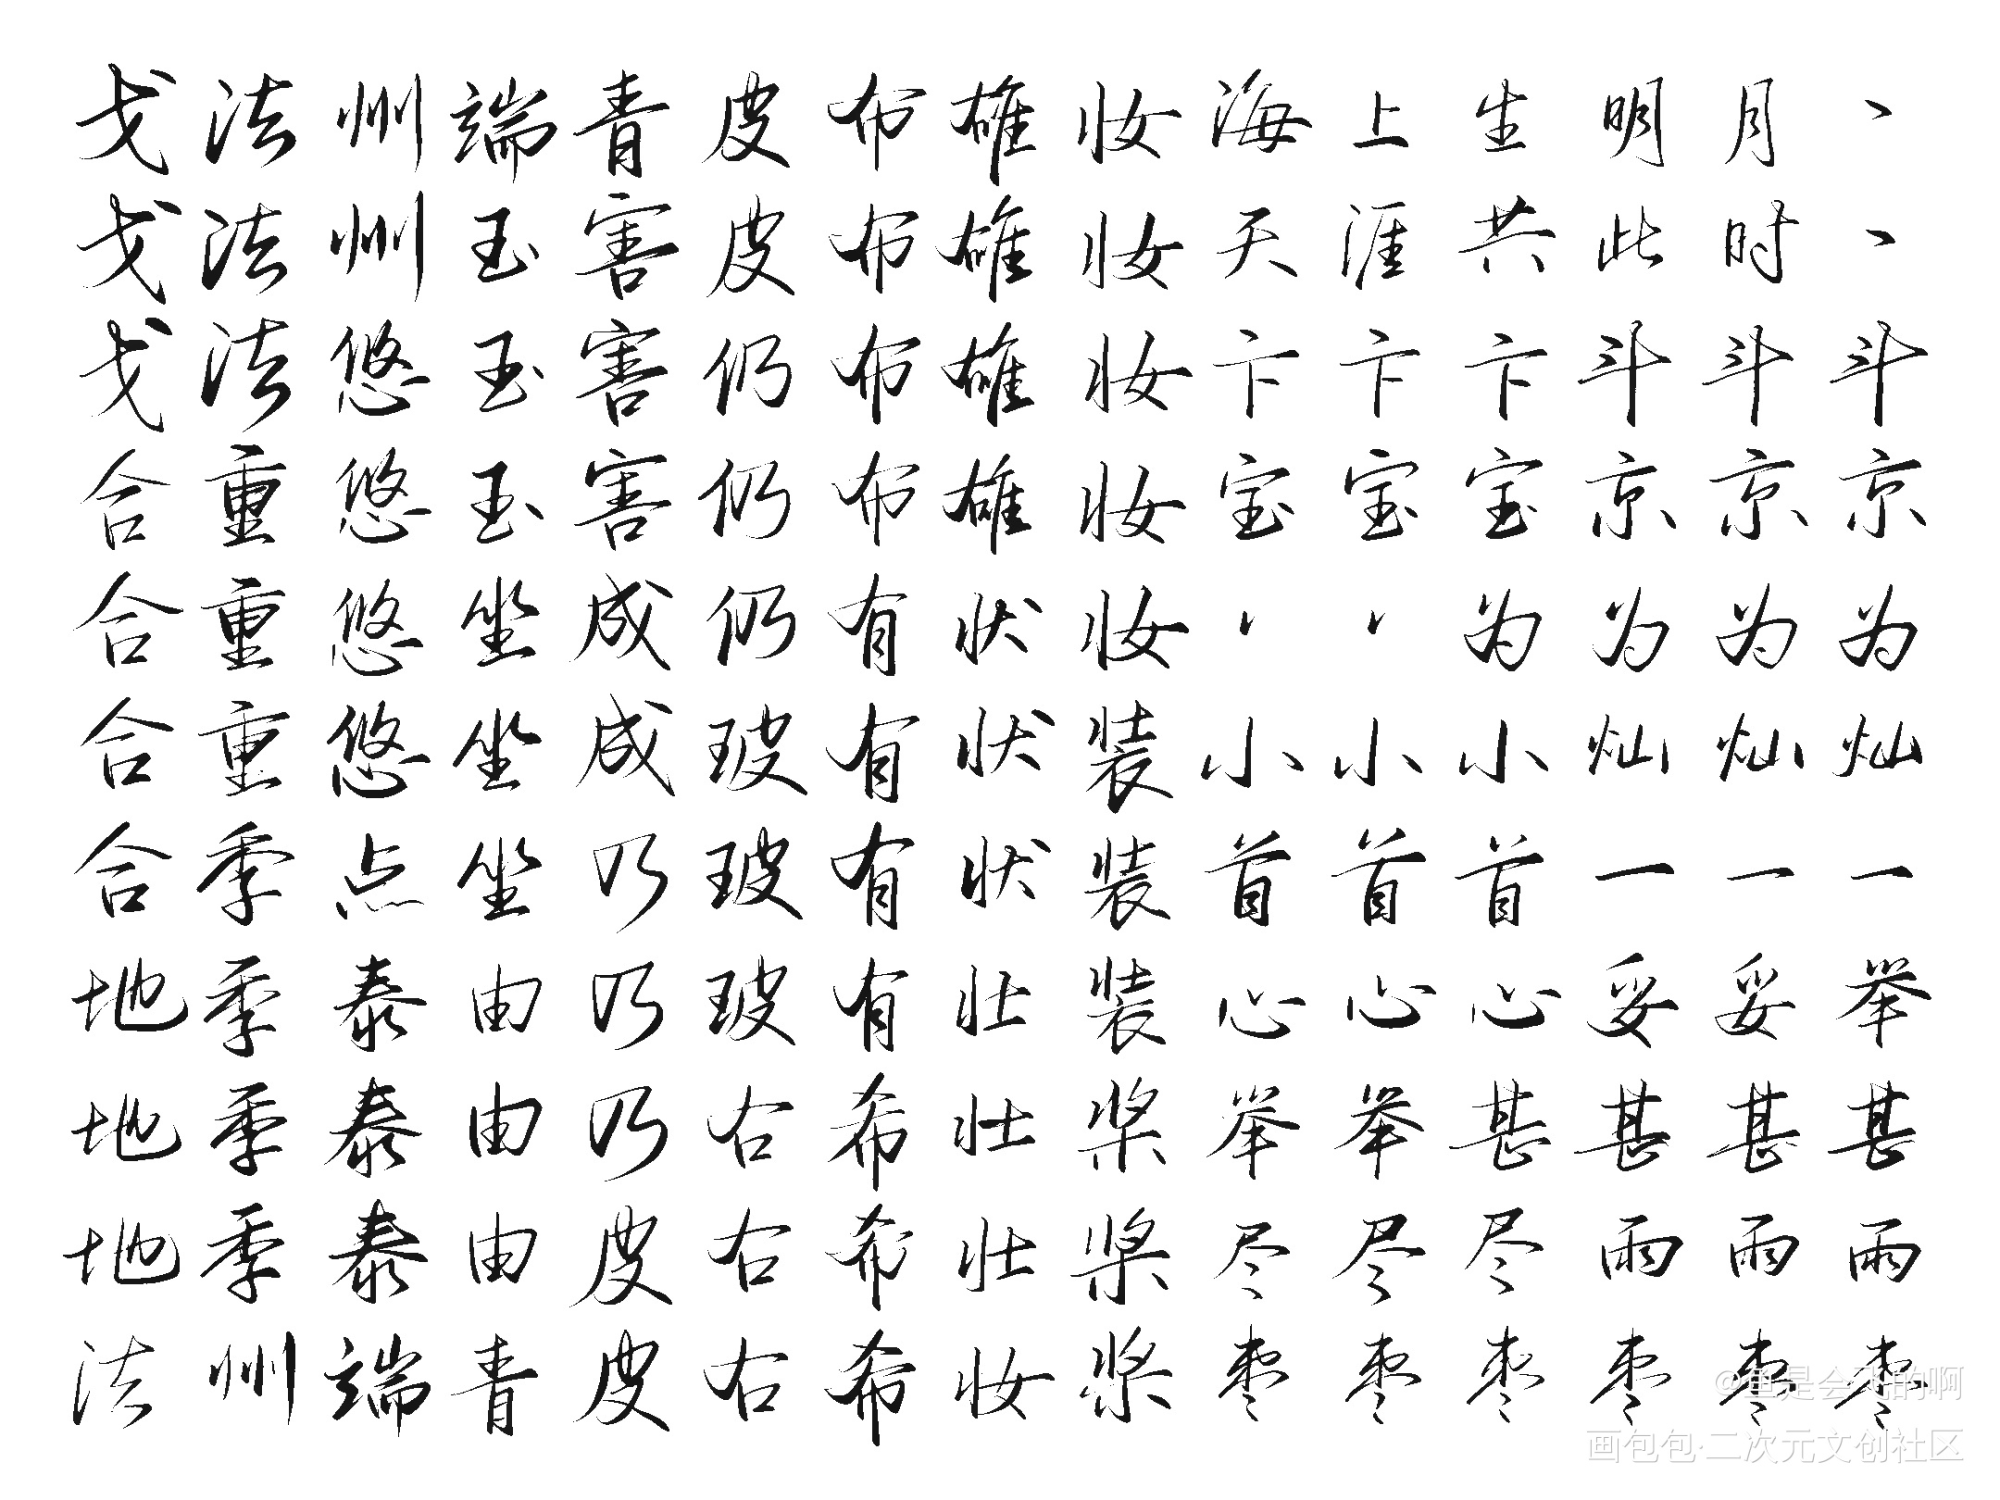 戈法州端青皮布雄妆海上生明月、
戈法州玉害皮布雄妆天涯共此时、
戈法悠玉害仍布雄妆卞卞卞斗斗斗
合重悠玉害仍布雄妆宝宝宝京京京
合重悠坐成仍有状妆丶丶为为为为
合重悠坐成玻有状装小小小灿灿灿
合季点坐乃玻有状装首首首一一一
地季泰由乃玻有壮装心心心妥妥举
地季泰由乃右希壮桨举举甚甚甚甚
地季泰由皮右希壮桨尽尽尽雨雨雨
法州端青皮右希妆桨枣枣枣枣枣枣
画包包·二次元文创社区